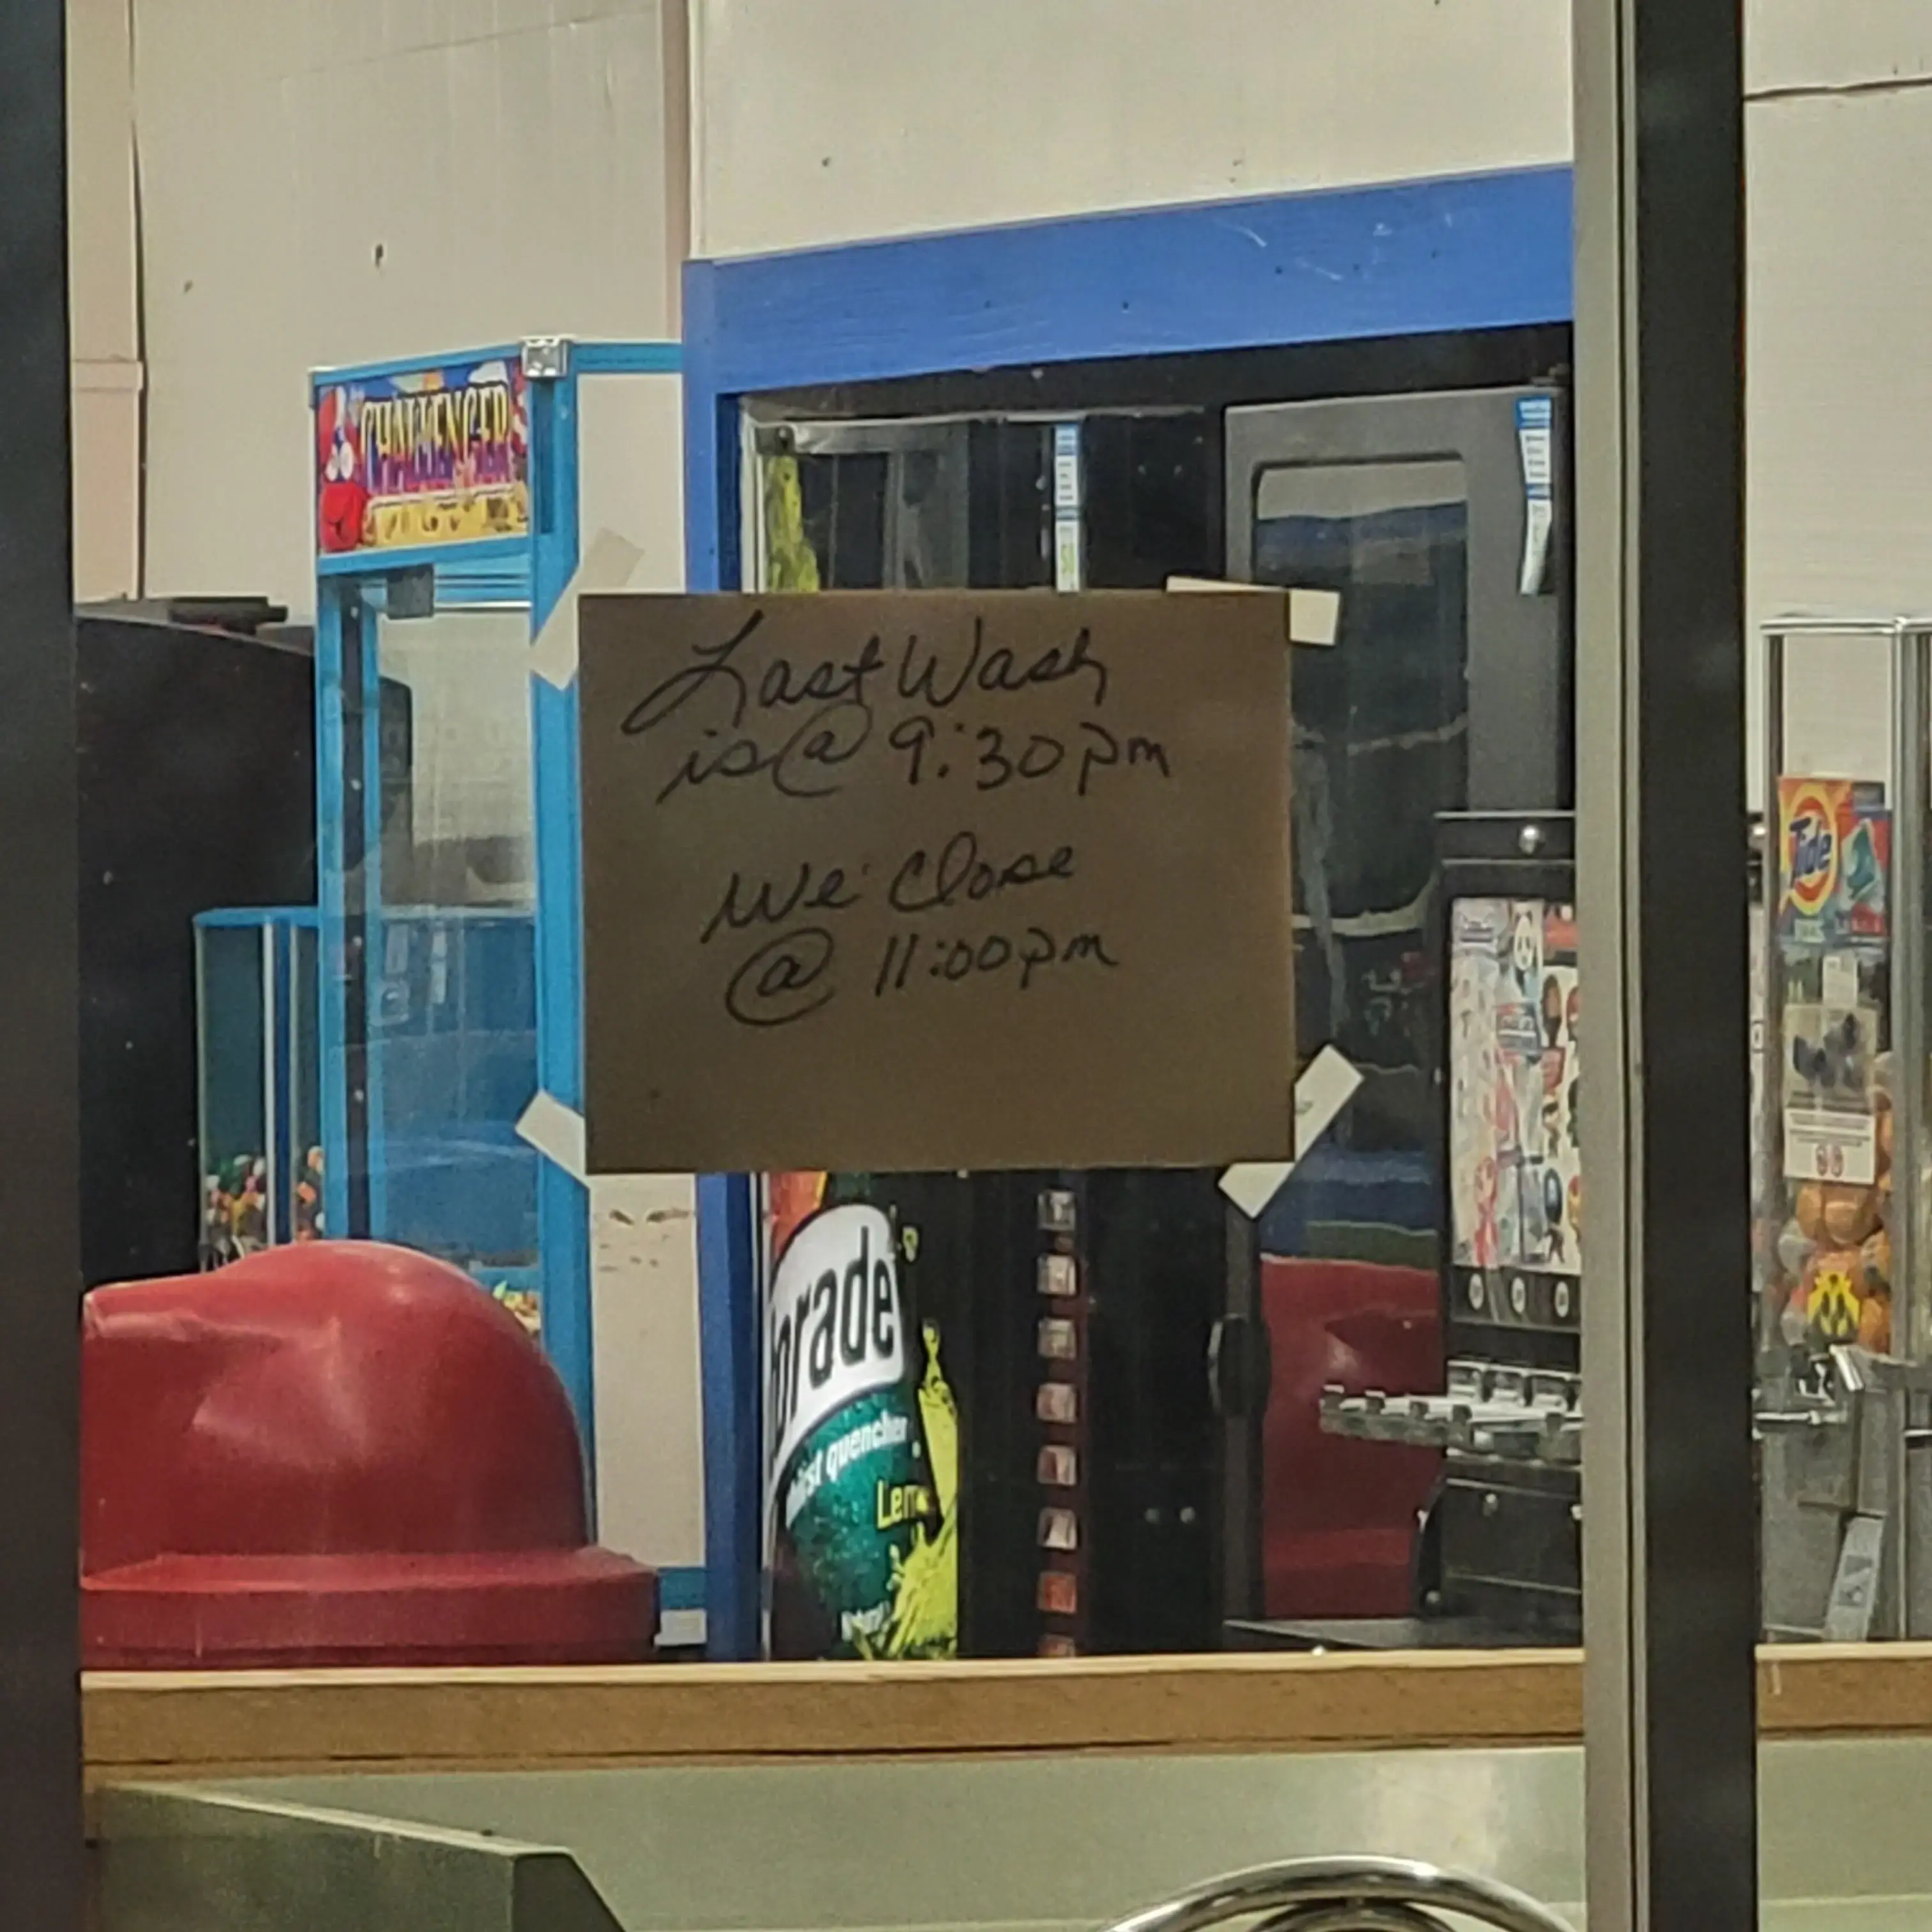 CHALLENGER
Last Wash
is @ 9:30pm
We Close
@ 11:00pm
Tide
orade
thirst quencher
Lem